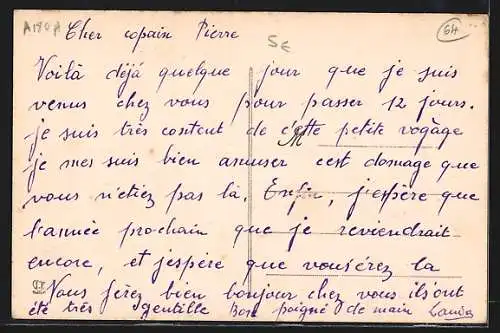 A180A
5E
64
Cher copain Pierre
Voilà déjà quelque jour que je suis
venus chez vous pour passer 12 jours.
je suis très contout de cette petite vogage
je mes suis bien amuser cest domage que
vous n'etiez pas là. Enfin, j'espère que
l'année prochain que je reviendrait
encore, et jespère que vous'érez la
Vous ferez bien bonjour chez vous ils'ont
été très gentille Bon poigné de main